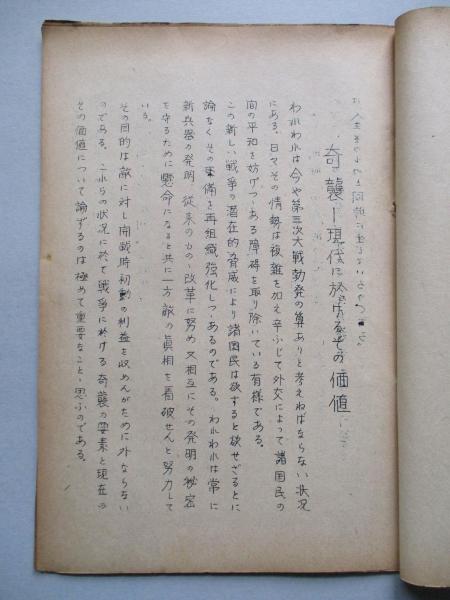 奇襲―現代に於けるその価値
われわれは今や第三次大戦勃発の算ありと考えねばならない状況
にある。日々その情勢は複雑を加え辛ふじて外交によって諸国民の
間の平和を妨げつゝある障碍を取り除いている有様である。
この新しい戦争の潜在的脅威により諸国民は欲すると欲せざるとに
論なくその軍備を再組織强化しつゝあるのである。われわれは常に
新兵器の発明、従来のものゝ改革に努め又相互にその発明の秘密
を守るために懸命になると共に一方敵の眞相を看破せんと努力して
いる。
その目的は敵に対し開戦時初動の利益を収めんがために外ならない
のである。これらの状況に於て戦争に於ける奇襲の要素と現在の
その価値について論ずるのは極めて重要なことゝ思ふのである。